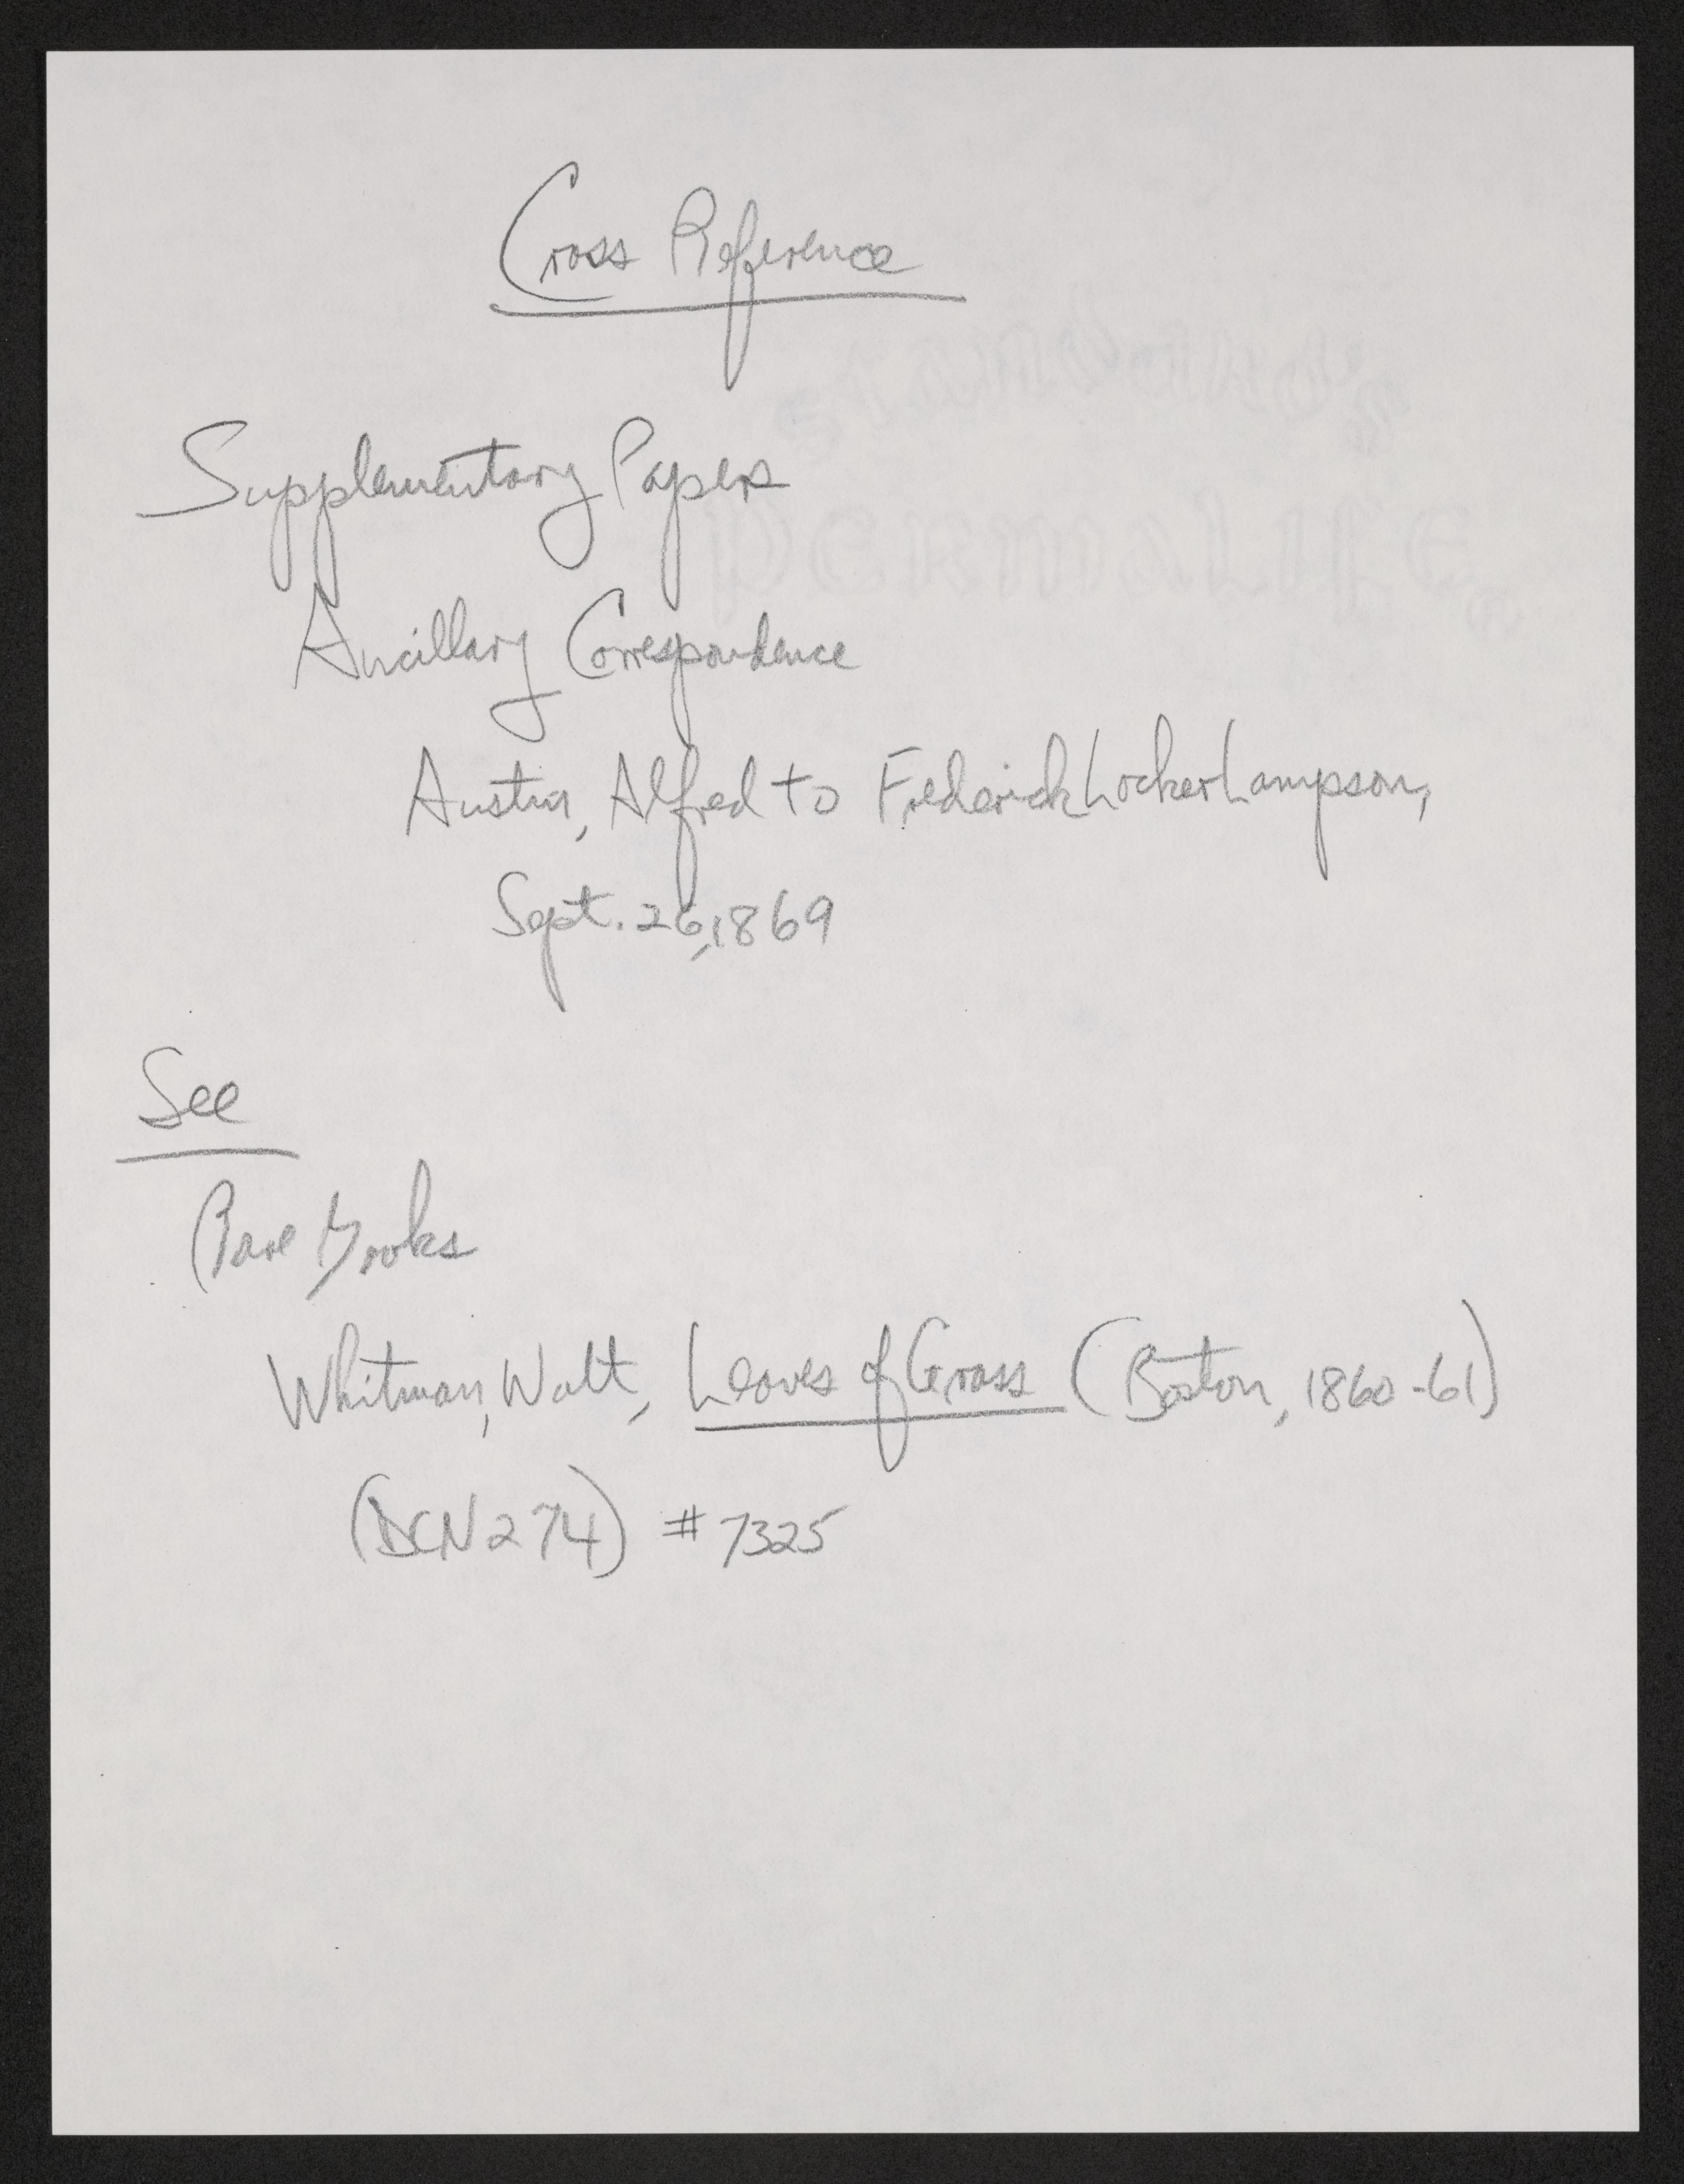 Cross Reference
Supplementary Papers
Ancillary Correspondence
Austin, Alfred to Frederick Locker Lampson,
Sept. 26, 1869
See
Rare Books
Whitman, Walt, Leaves of Grass (Boston, 1860-61)
(DCN 274) #7325